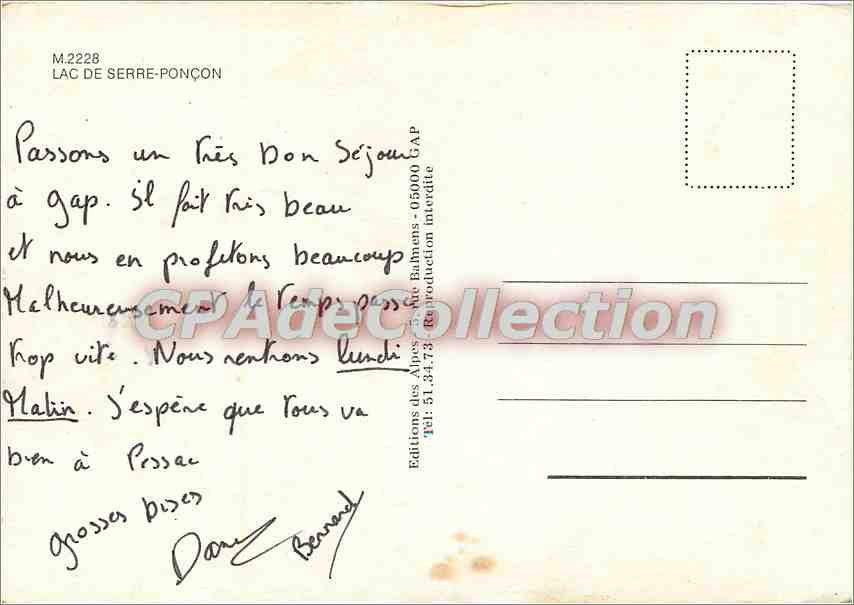 M.2228
LAC DE SERRE-PONÇON
Passons un très bon séjour
à gap. il fait très beau
et nous en profitons beaucoup
Malheureusement le temps passe
trop vite. Nous rentrons lundi
Matin. J'espère que tous va
bien à Pessac
grosses bises
Bernard
Editions des Alpes - 5, rue Balmens - 05000 GAP
Tél: 51.34.73 - Reproduction interdite
CPAdeCollection